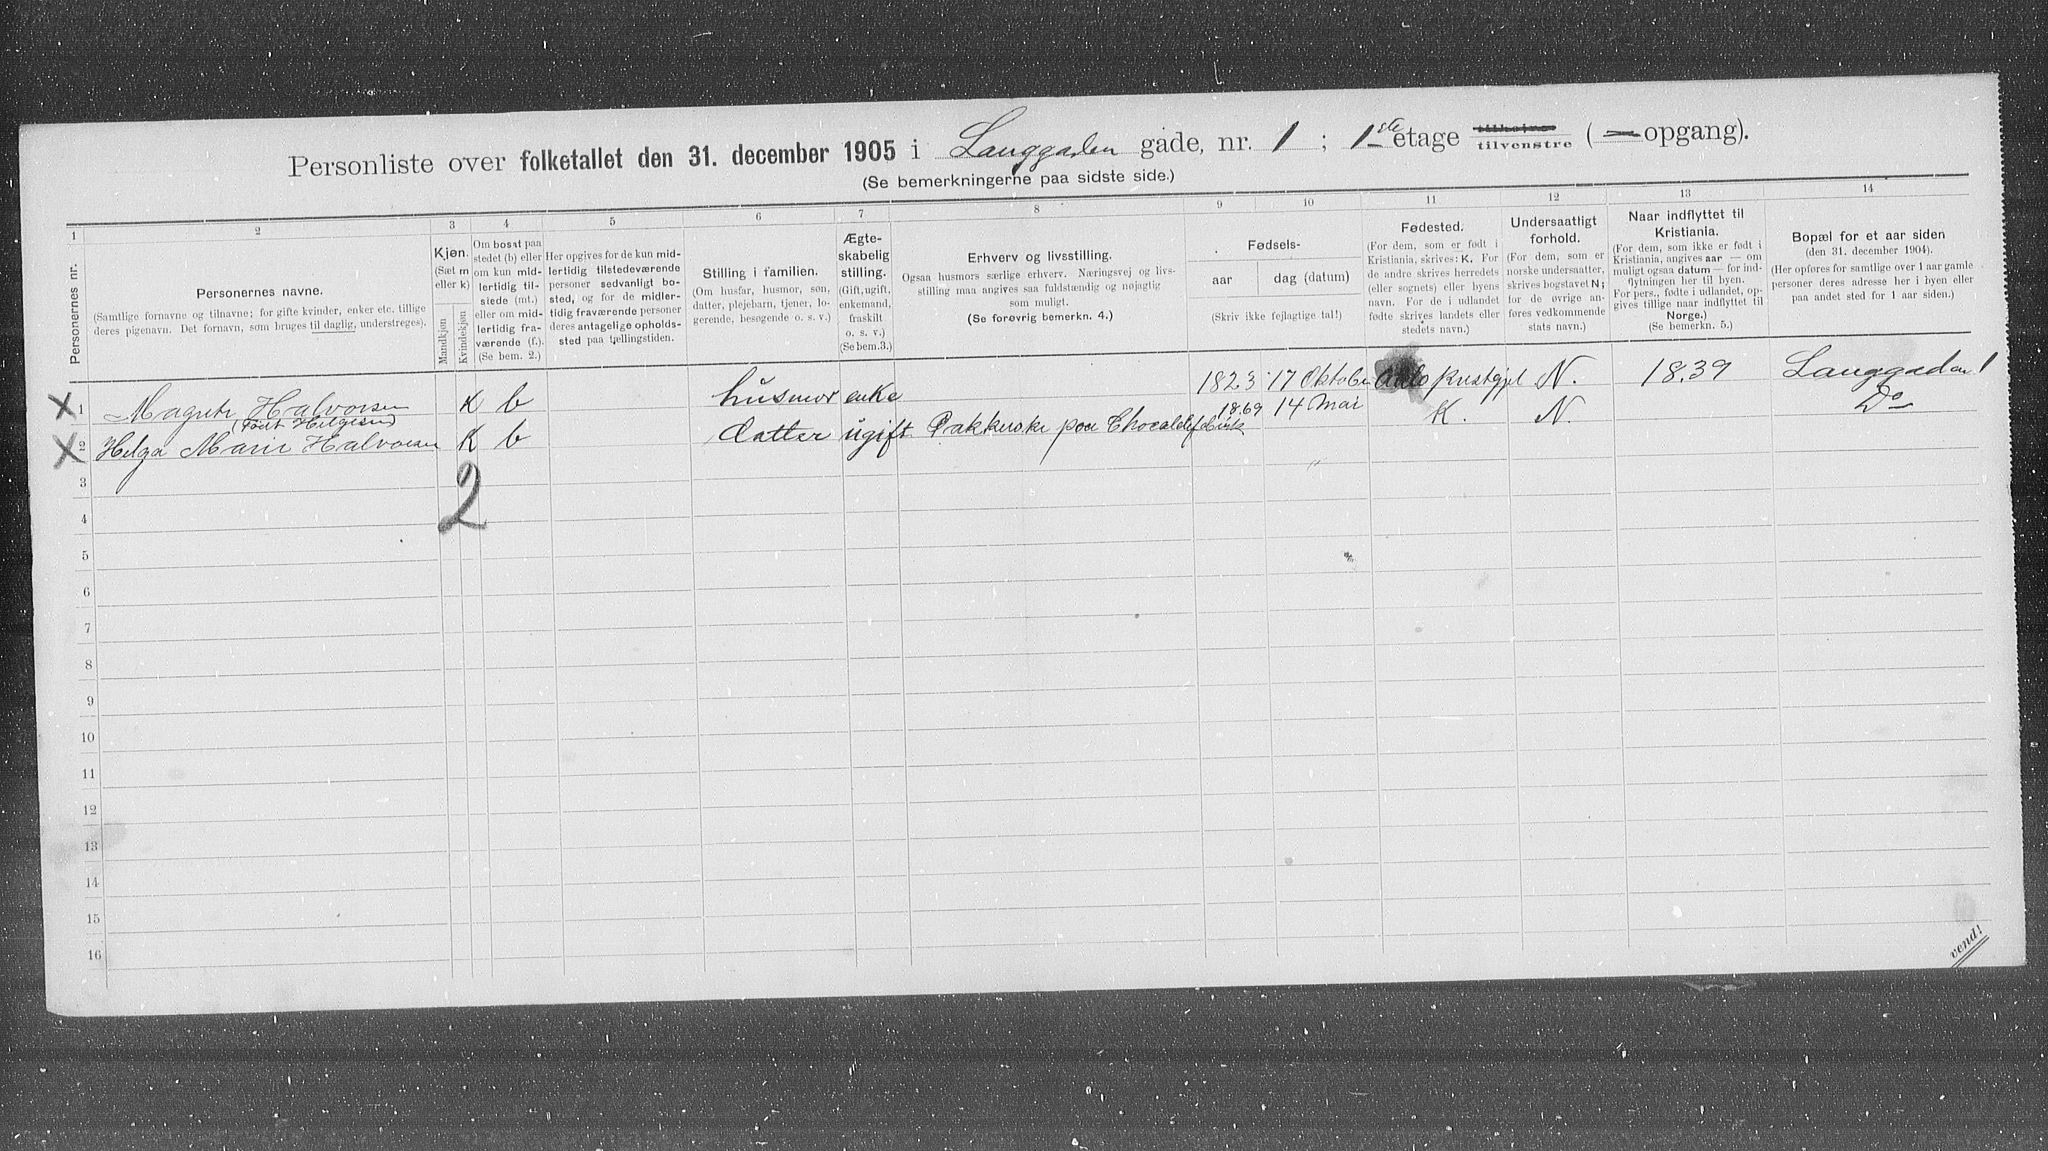 Personliste over folketallet den 31. december 1905 i Langgaden gade, nr. 1 ; 1ste etage tilhøjre tilvenstre ( — opgang).
(Se bemerkningerne paa sidste side.)
1 2 3 4 5 6 7 8 9 10 11 12 13 14
Personernes nr.
Personernes navne.
(Samtlige fornavne og tilnavne; for gifte kvinder, enker etc, tillige
deres pigenavn. Det fornavn, søm bruges til daglig, understreges).
Kjøn.
(Sæt m
eller k)
Mandkjøn
Kvindekjøn
Om bosat paa
stedet (b) eller
om kun mid-
lertidig til-
stede (mt.)
eller om mid-
lertidig fra-
værende (f.).
(Se bem. 2.)
Her opgives for de kun mid-
lertidig tilstedeværende
personer sedvanligt bo-
sted, og for de midler-
tidig fraværende personer
deres antagelige opholds-
sted paa tællingstiden.
Stilling i familien.
(Om husfar, husmor, søn,
datter, plejebarn, tjener, lo-
gerende, besøgende o. s. v.)
Ægte-
skabelig
stilling.
(Gift, ugift,
enkemand,
fraskilt
o. s. v.)
(Se bem.3.)
Erhverv og livsstilling.
Ogsaa husmors særlige erhverv. Næringsvej og livs-
stilling maa angives saa fuldstændig og nøjagtig
som muligt.
(Se forøvrig bemerkn. 4.)
Fødsels-
aar
dag (datum)
(Skriv ikke fejlagtige tal!)
Fødested.
(For dem, som er født i
Kristiania, skrives: K. For
de andre skrives herredets
(eller sognets) eller byens
navn. For de i udlandet
fødte skrives landets eller
stedets navn.)
Undersaatligt
forhold.
(For dem, som er
norske undersaatter,
skrives bogstavet N;
for de øvrige an-
føres vedkommende
stats navn.)
Naar indflyttet til
Kristiania.
(For dem, som ikke er født i
Kristiania, angives aar — om
muligt ogsaa datum — for ind-
flytningen her til byen.
For pers., fødte i udlandet, op-
gives tillige naar indflyttet til
Norge.)
(Se bemerkn. 5.)
Bopæl for et aar siden
(den 31. december 1904).
(Her opføres for samtlige over 1 aar gamle
personer deres adresse her i byen eller
paa andet sted for 1 aar siden.)
X 1 Halvorsen K b husmor enke 1823 17 Oktober N. 1839 Langgaden 1
(født Helgesen)
X 2 Helga Marie Halvorsen K b datter ugift Pakkerske paa 1869 14 Mai K. N. Do
2
3
4
5
6
7
8
9
10
11
12
13
14
15
16
vend!